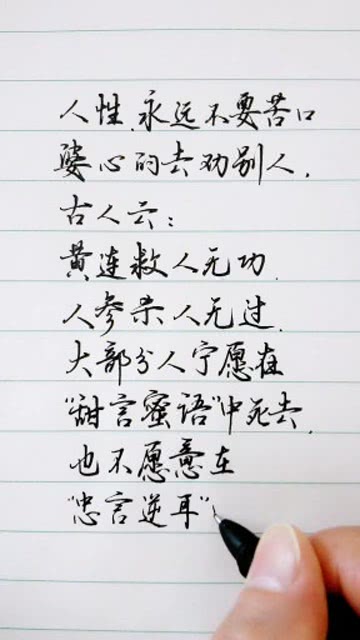 人性,永远不要苦口
婆心的去劝别人,
古人云:
黄连救人无功,
人参杀人无过,
大部分人宁愿在
“甜言蜜语”中死去,
也不愿意在
“忠言逆耳”